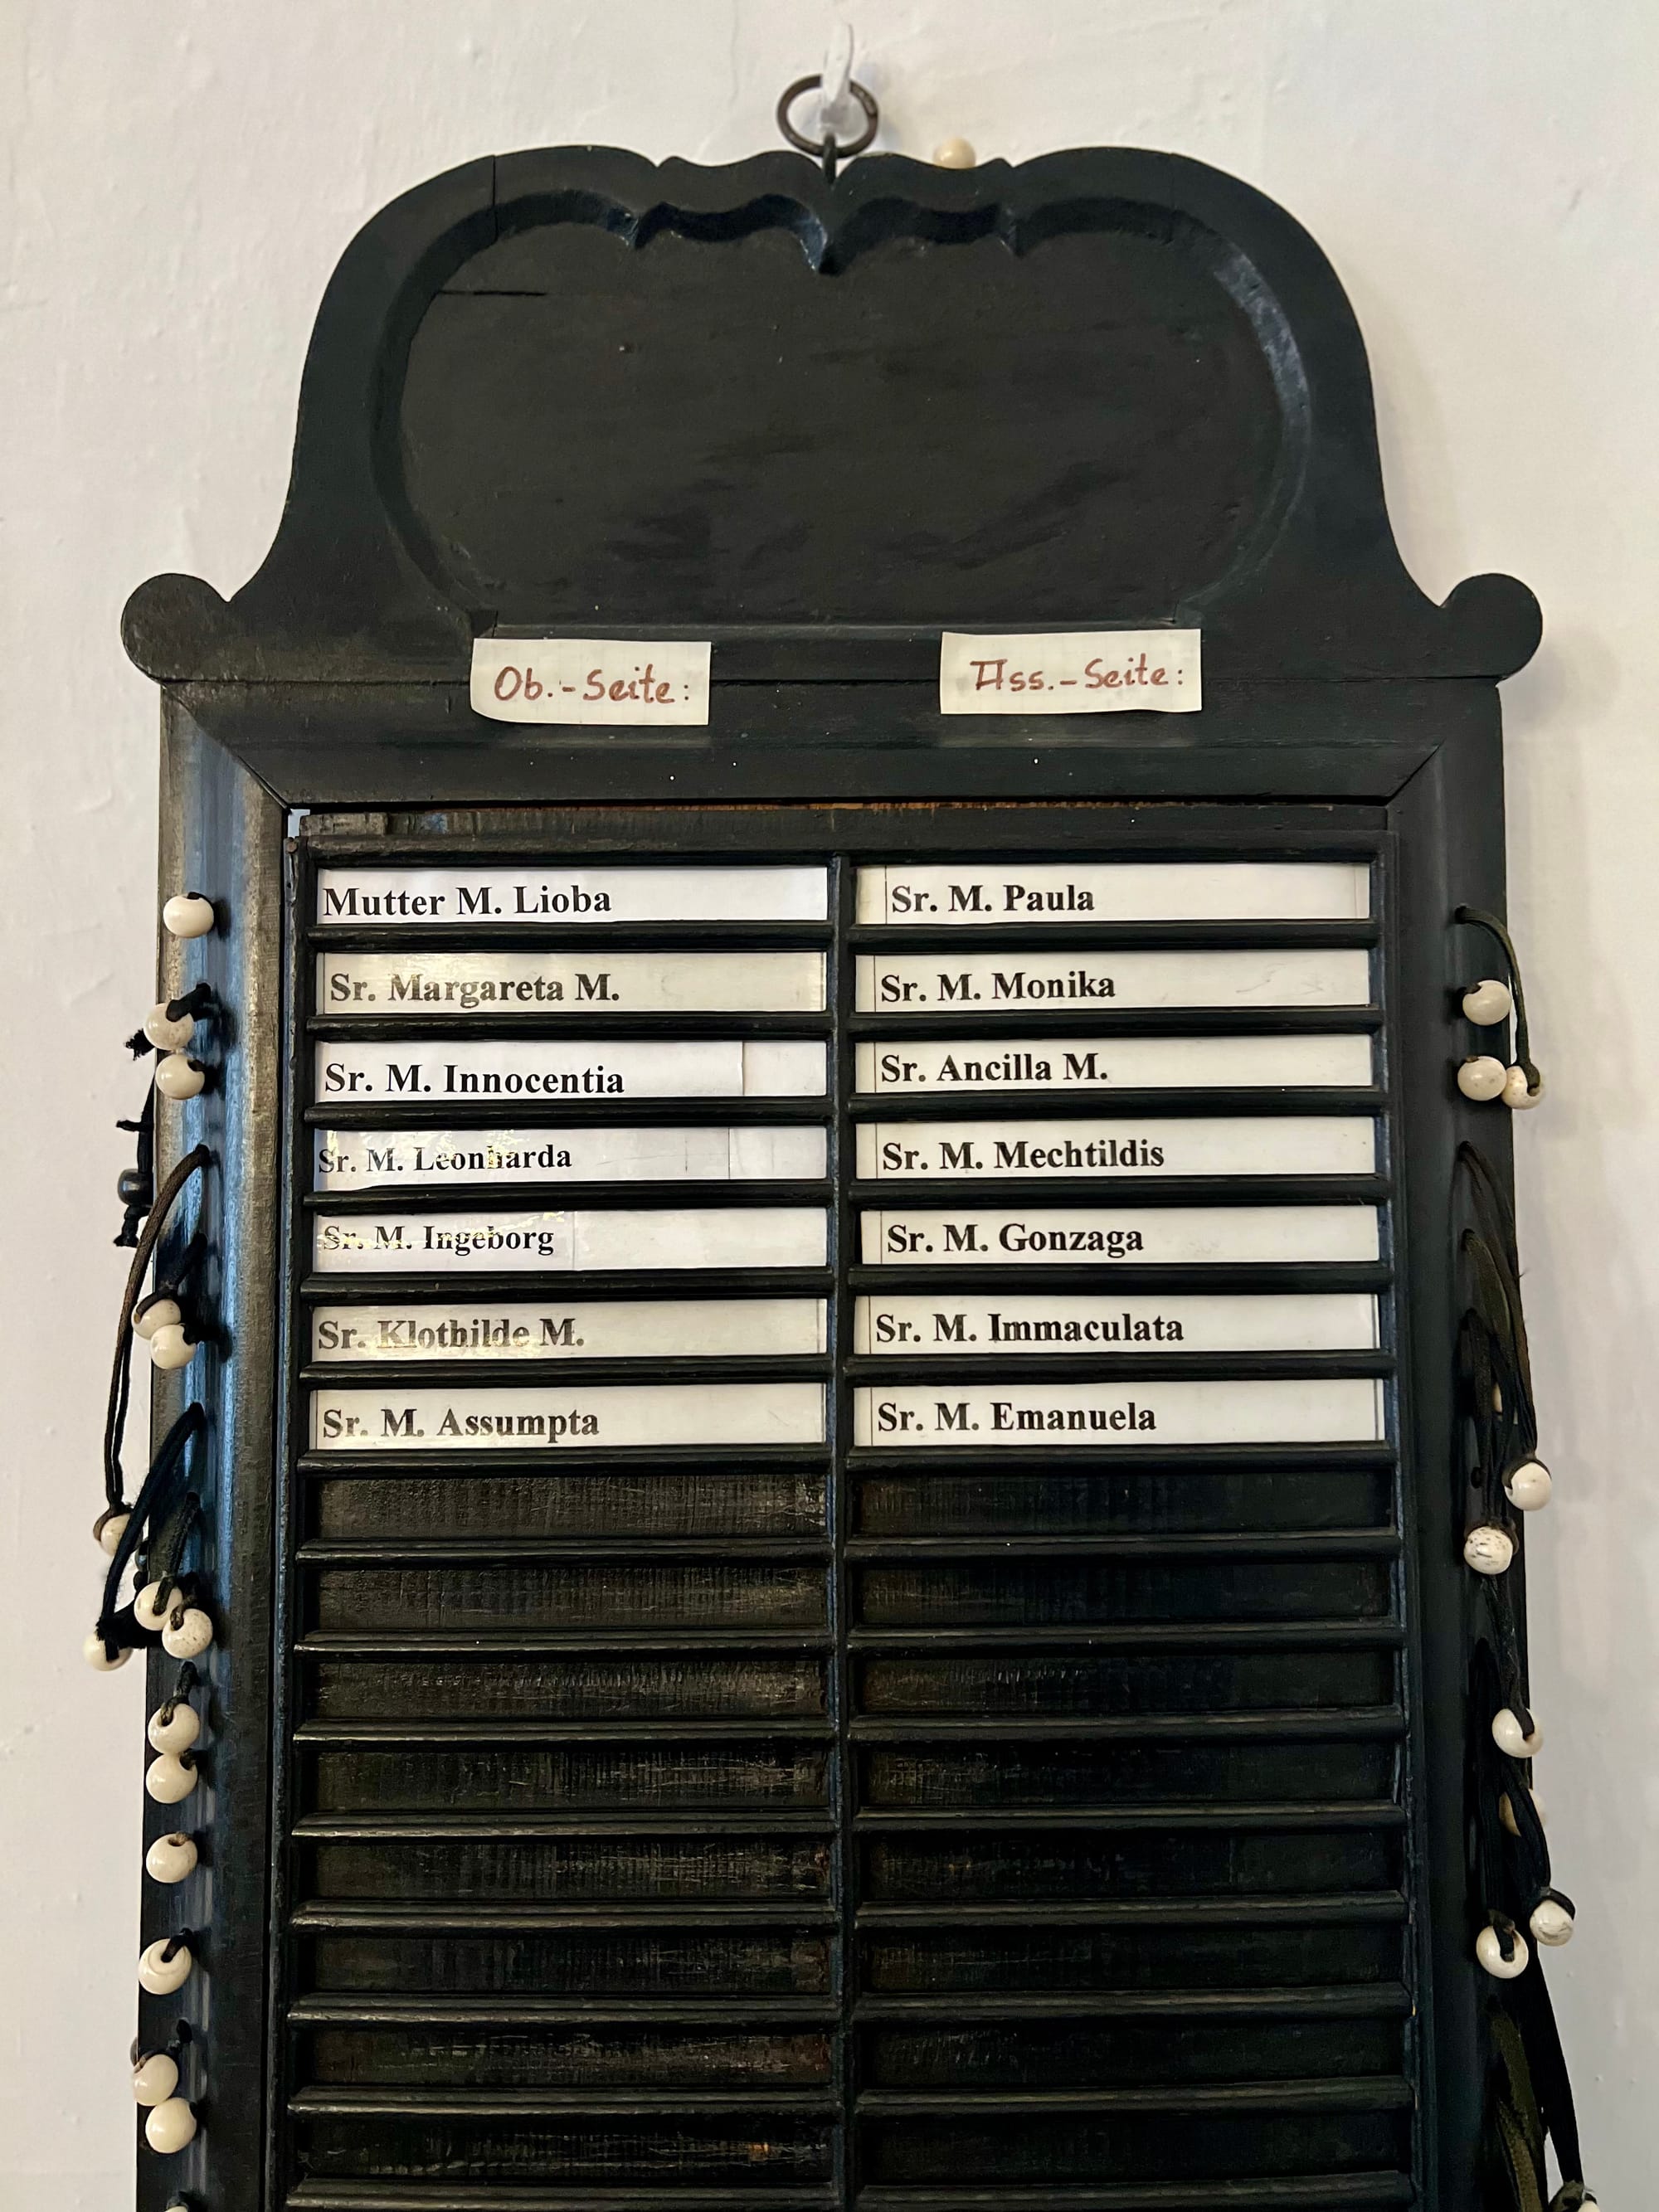 Ob.-Seite:
Ass.-Seite:
Mutter M. Lioba
Sr. Margareta M.
Sr. M. Innocentia
Sr. M. Leonharda
Sr. M. Ingeborg
Sr. Klothilde M.
Sr. M. Assumpta
Sr. M. Paula
Sr. M. Monika
Sr. Ancilla M.
Sr. M. Mechtildis
Sr. M. Gonzaga
Sr. M. Immaculata
Sr. M. Emanuela